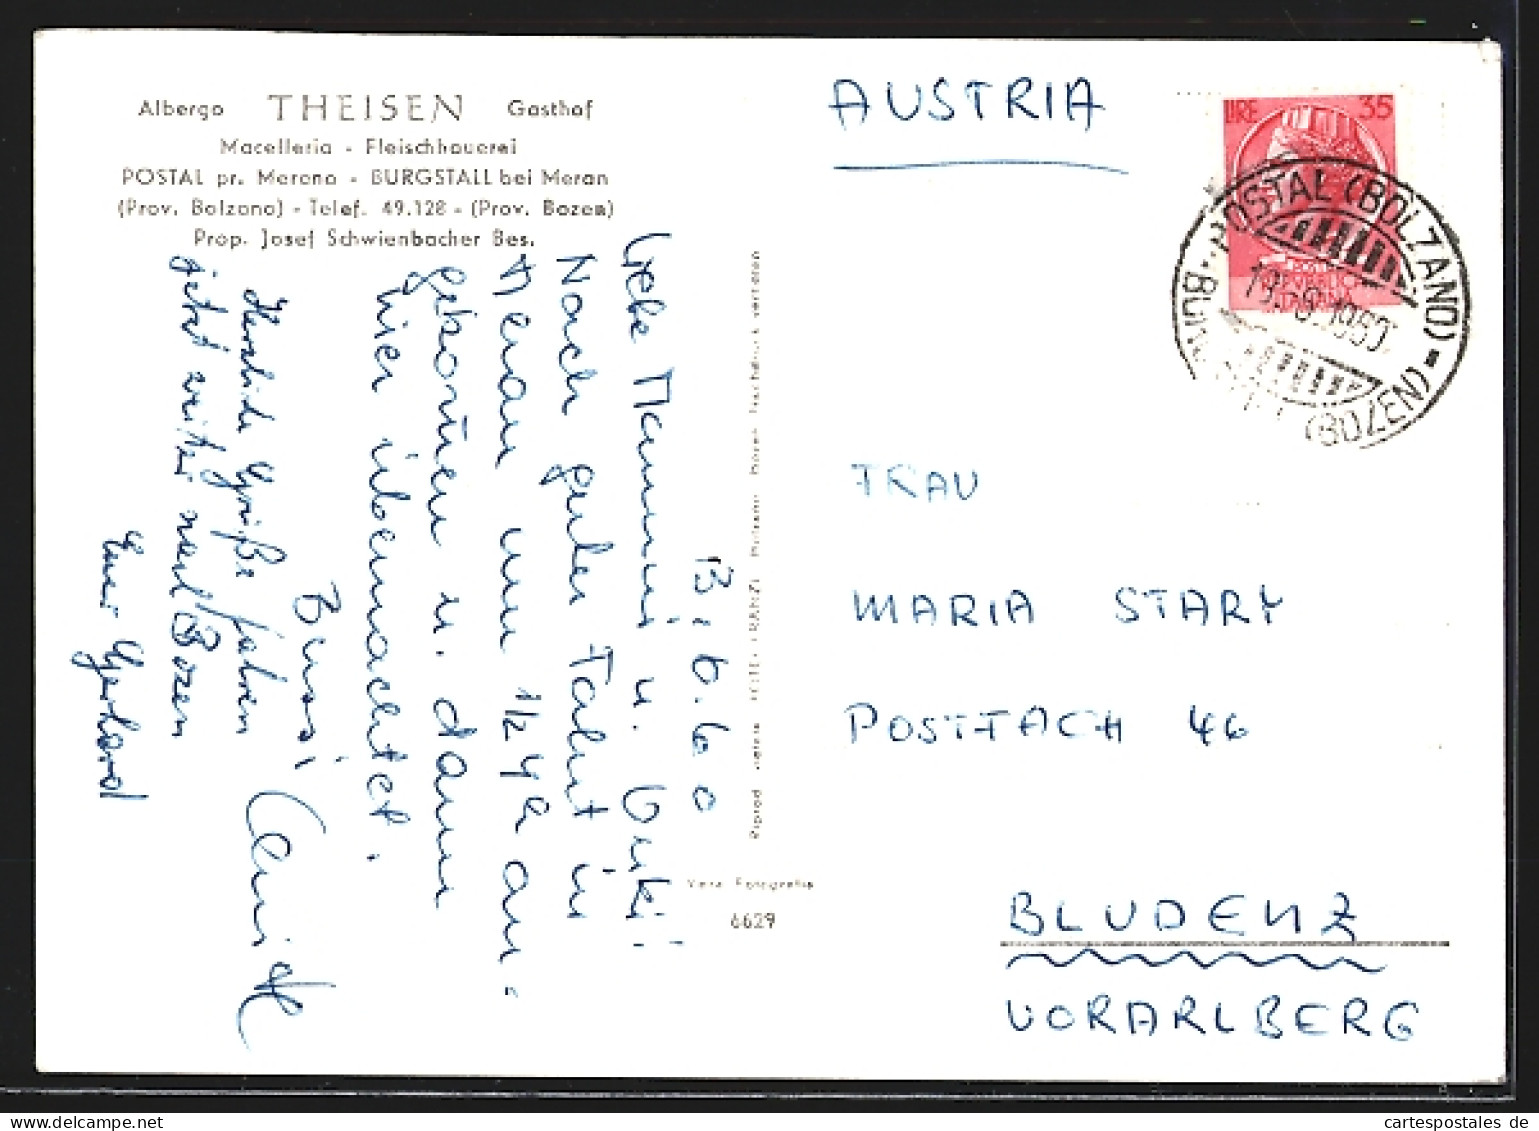 Albergo THEISEN Gasthof
Macelleria - Fleischhauerei
POSTAL pr. Merano - BURGSTALL bei Meran
(Prov. Bolzano) - Telef. 49.128 - (Prov. Bozen)
Prop. Josef Schwienbacher Bes.
13.6.60
Liebe Mammi u. Burki!
Nach guter Fahrt in
Meran um 1/2 9h an-
gekommen u. dann
hier übernachtet.
Bussi
Herzliche Grüße fahren
jetzt weiter nach Bozen
Euer Gerhard
Vera Fotografia
6629
AUSTRIA
LIRE 35
POSTE
REPUBBLICA
ITALIANA
POSTAL (BOLZANO) =
(BOZEN)
FRAU
MARIA STARY
POSTFACH 46
BLUDENZ
VORARLBERG
cartespostales.de